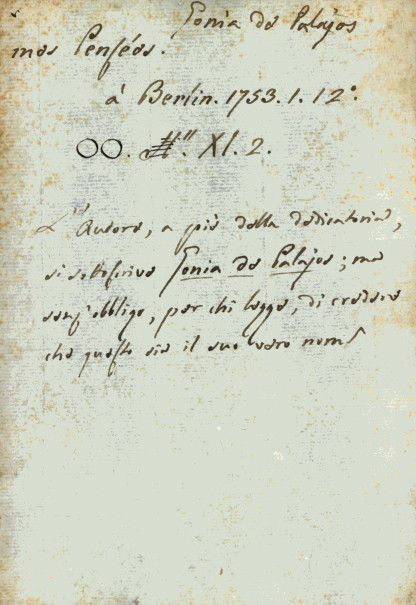 Gonia de Palajos
mes Penséés.
à Berlin. 1753. 1. 12°.
OO. XI. 2.
L'Autore, a piè della dedicatoria,
si sottoscrive Gonia de Palajos; ma
senz'obbligo, per chi legge, di credere
che questo sia il suo vero nome